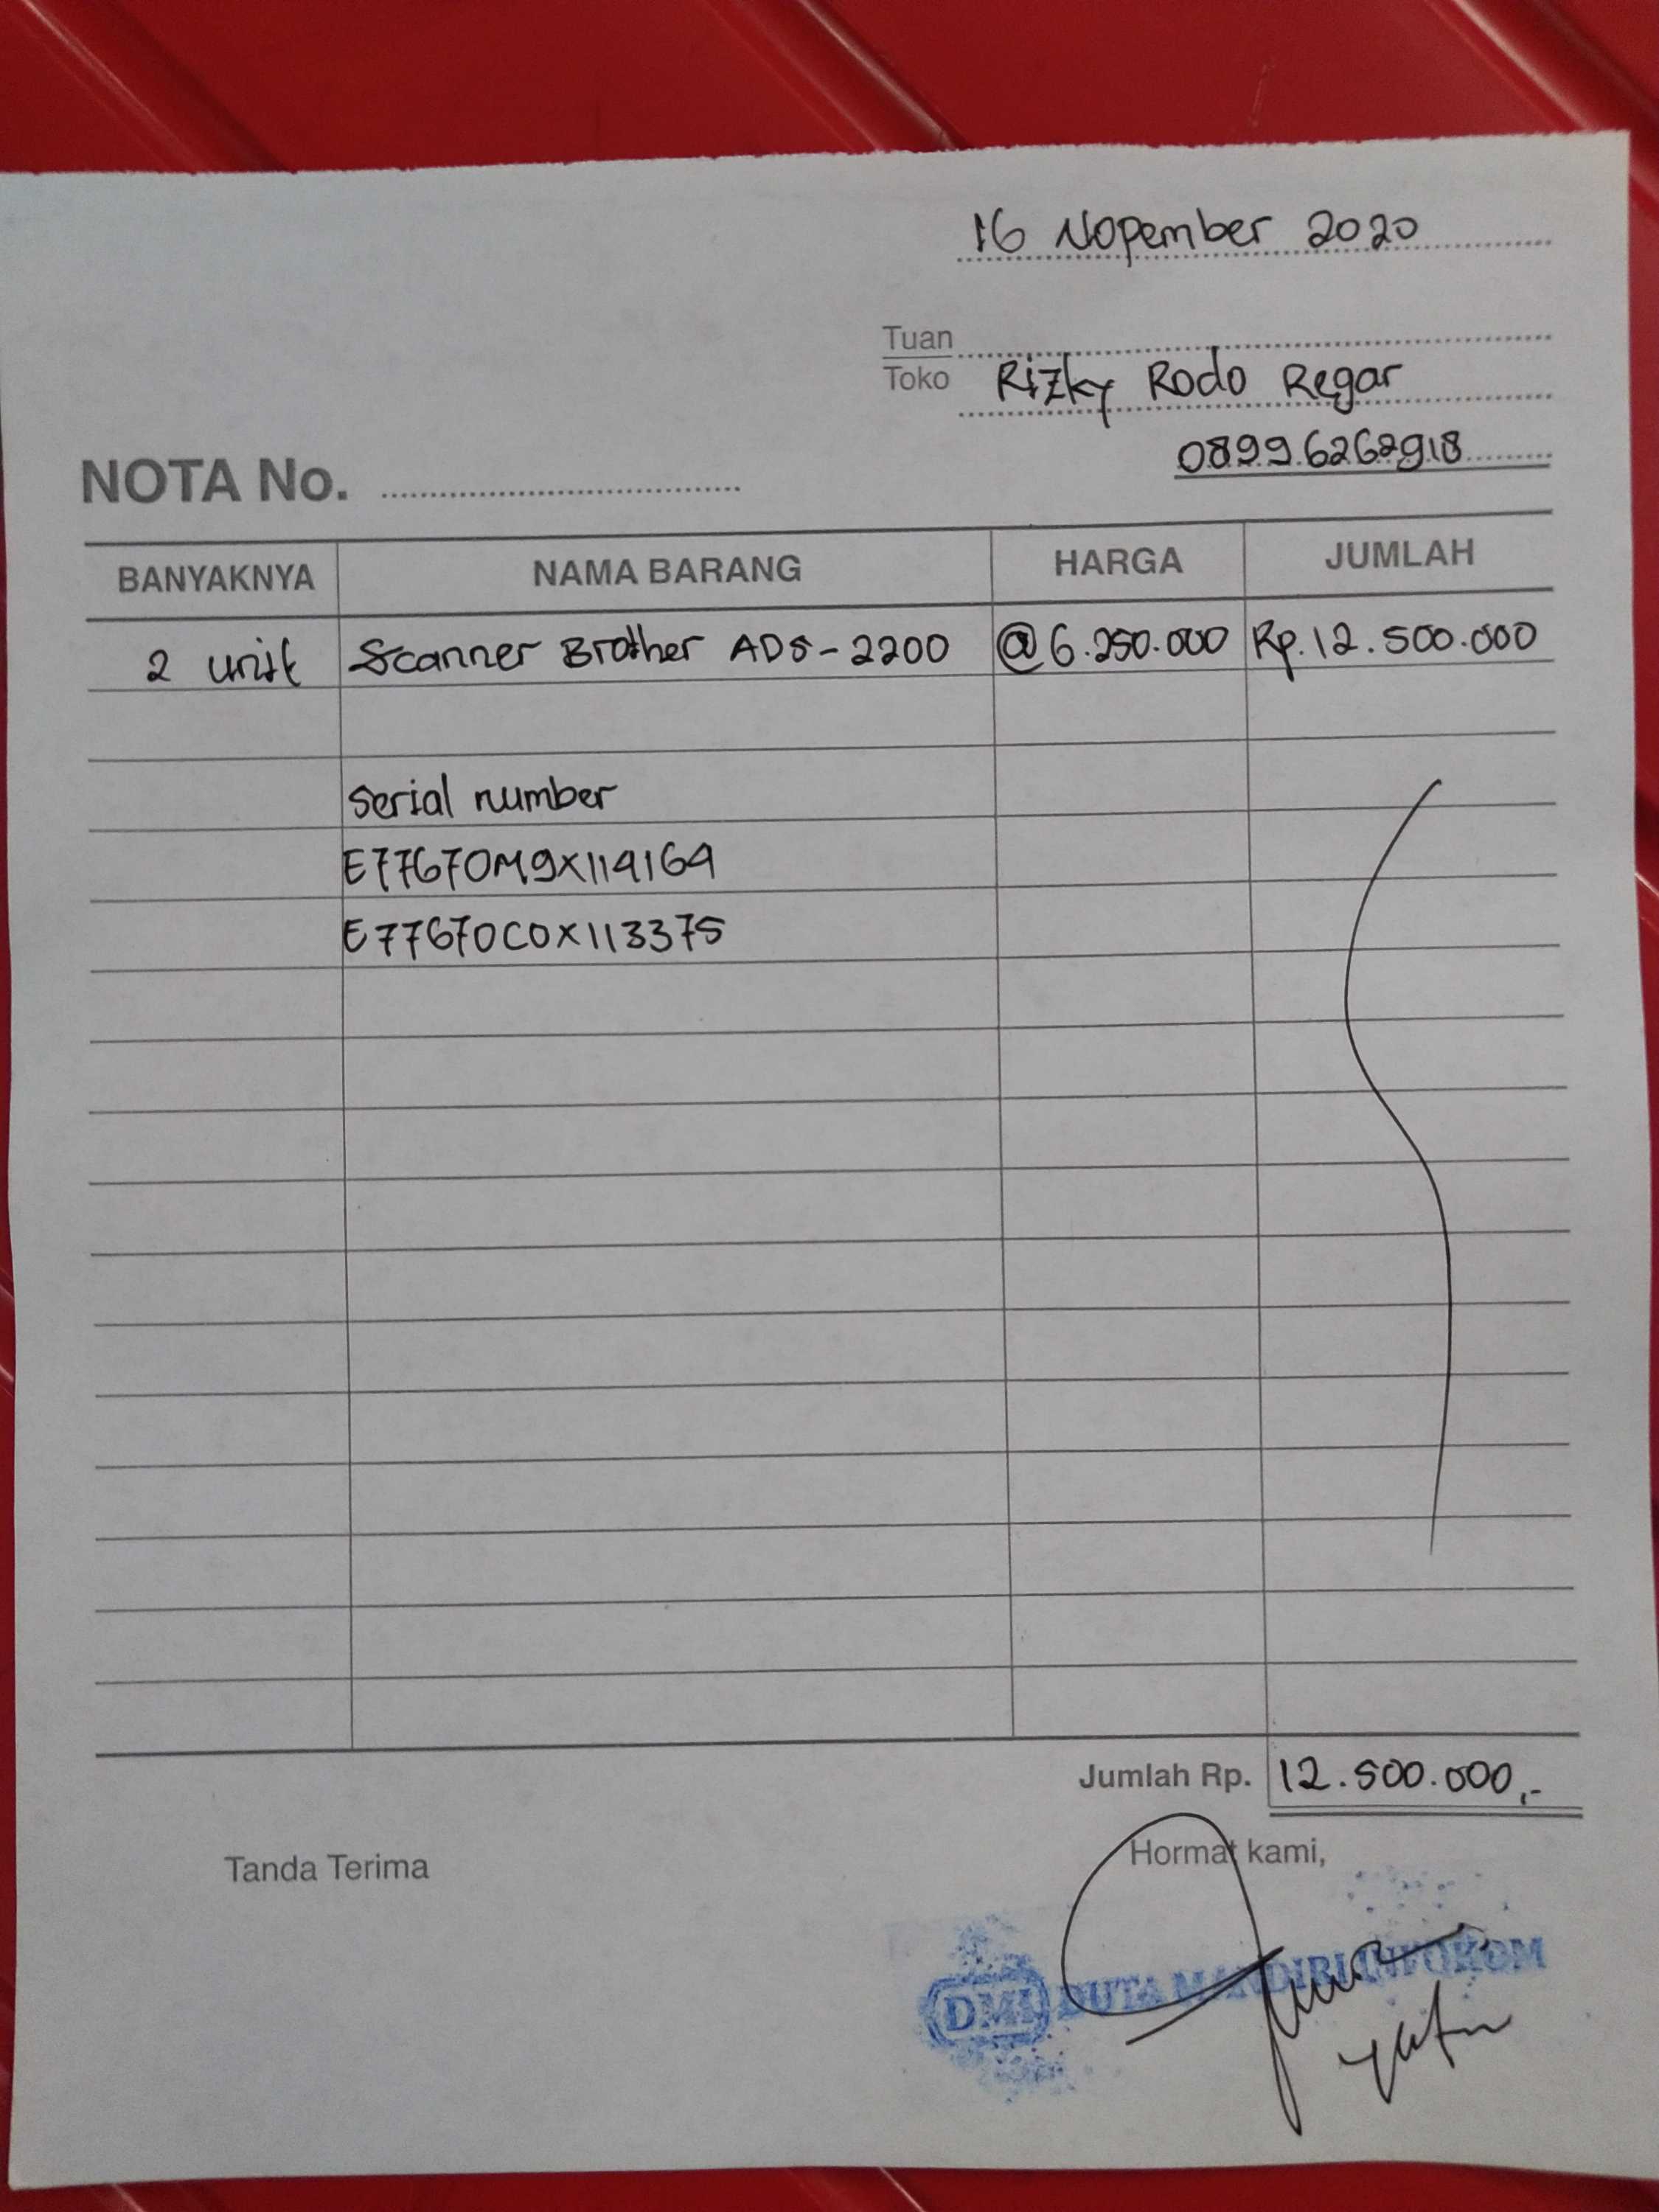 16 Nopember 2020
Tuan
Toko Rizky Rodo Regar
08996262918
NOTA No.
BANYAKNYA NAMA BARANG HARGA JUMLAH
2 unit Scanner Brother ADS-2200 @6.250.000 Rp.12.500.000
Serial number
E77670M9X114164
E77670C0X113375
Jumlah Rp. 12.500.000,-
Tanda Terima Hormat kami,
DMI DUTA MANDIRI INFOKOM